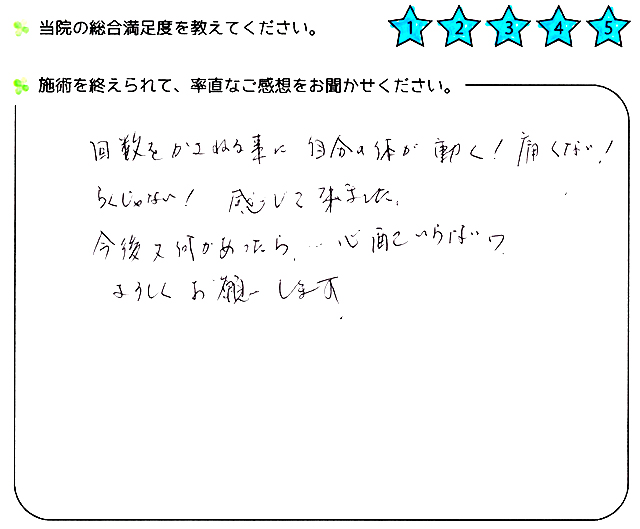 当院の総合満足度を教えてください。 1 2 3 4 5
施術を終えられて、率直なご感想をお聞かせください。
回数をかさねる事に 自分の体が 動く！痛くない！
らくじゃない！ 感じて来ました。
今後又何かあったら、…心配いらないワ
よろしく お願いします